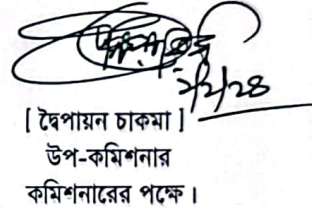 ২/২/২৪
[ দ্বৈপায়ন চাকমা ]
উপ-কমিশনার
কমিশনারের পক্ষে।